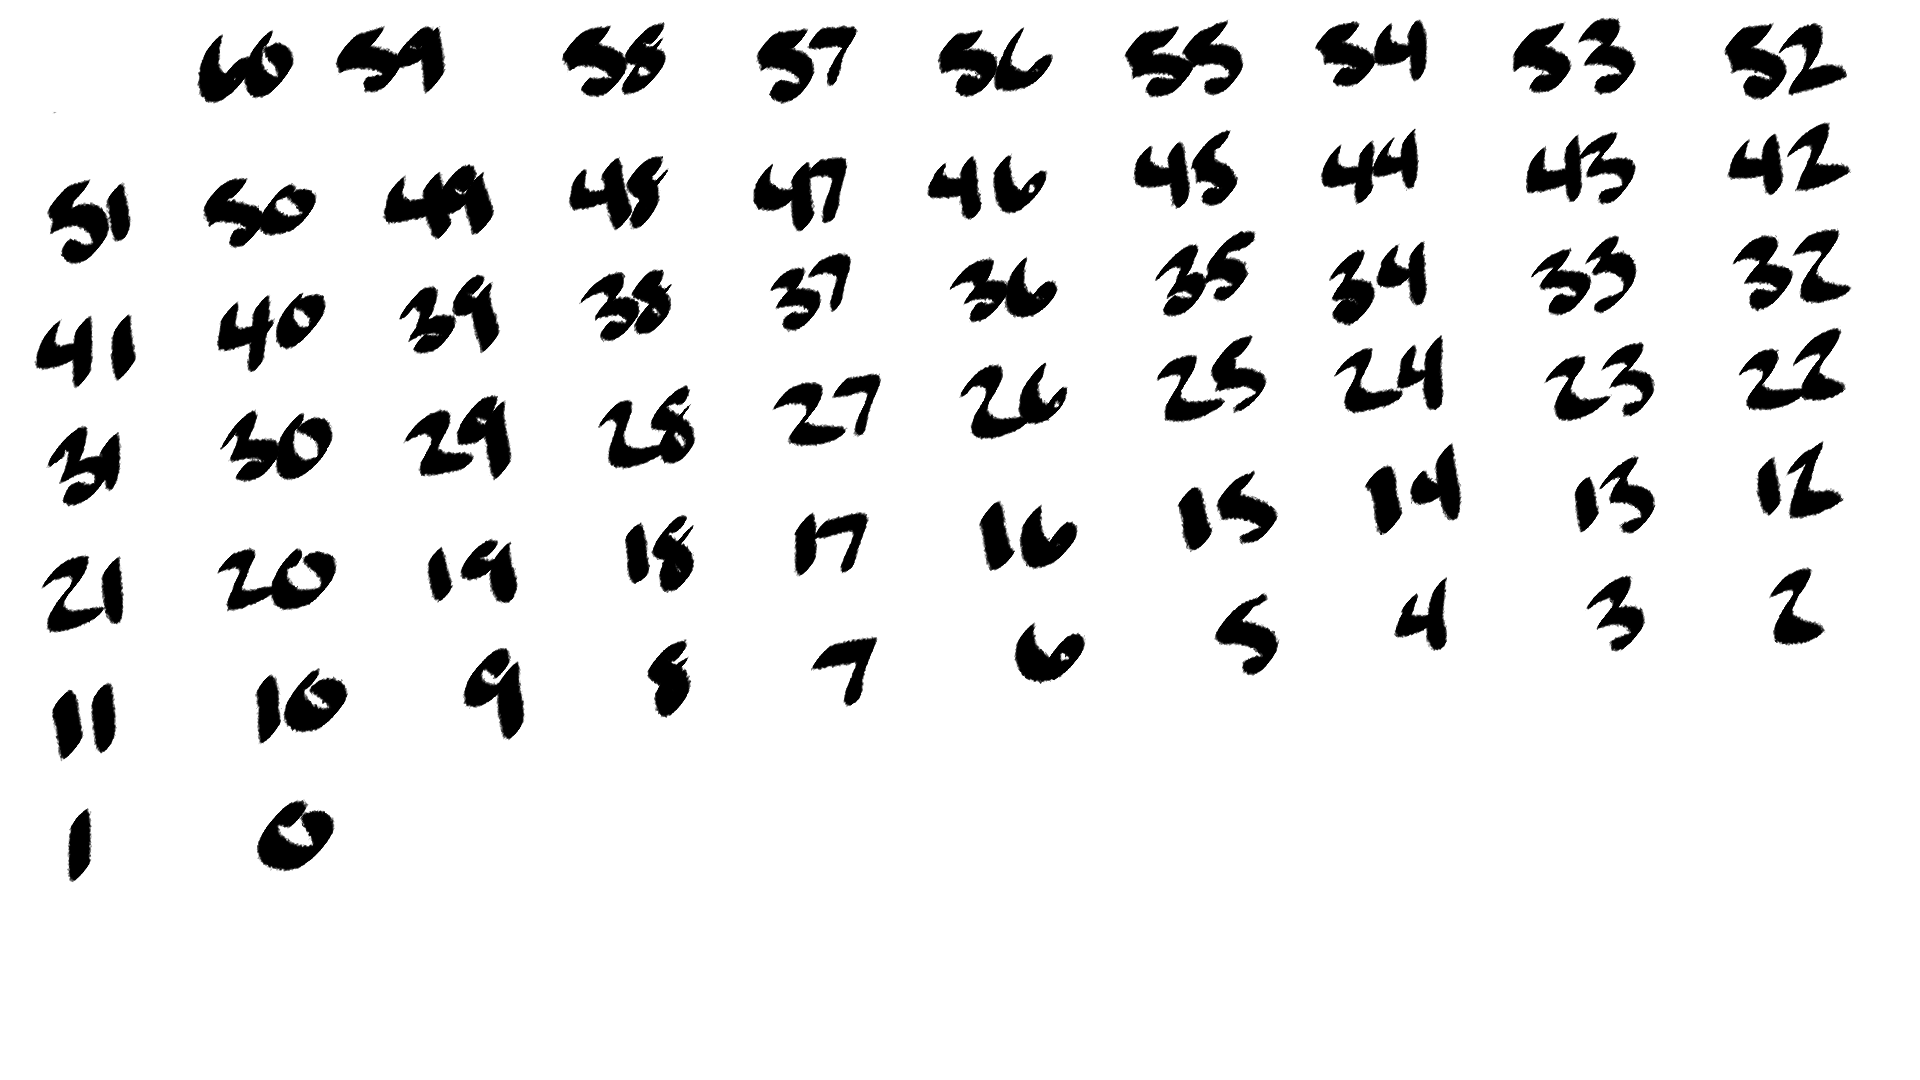 60 59 58 57 56 55 54 53 52
51 50 49 48 47 46 45 44 43 42
41 40 39 38 37 36 35 34 33 32
31 30 29 28 27 26 25 24 23 22
21 20 19 18 17 16 15 14 13 12
11 10 9 8 7 6 5 4 3 2
1 0